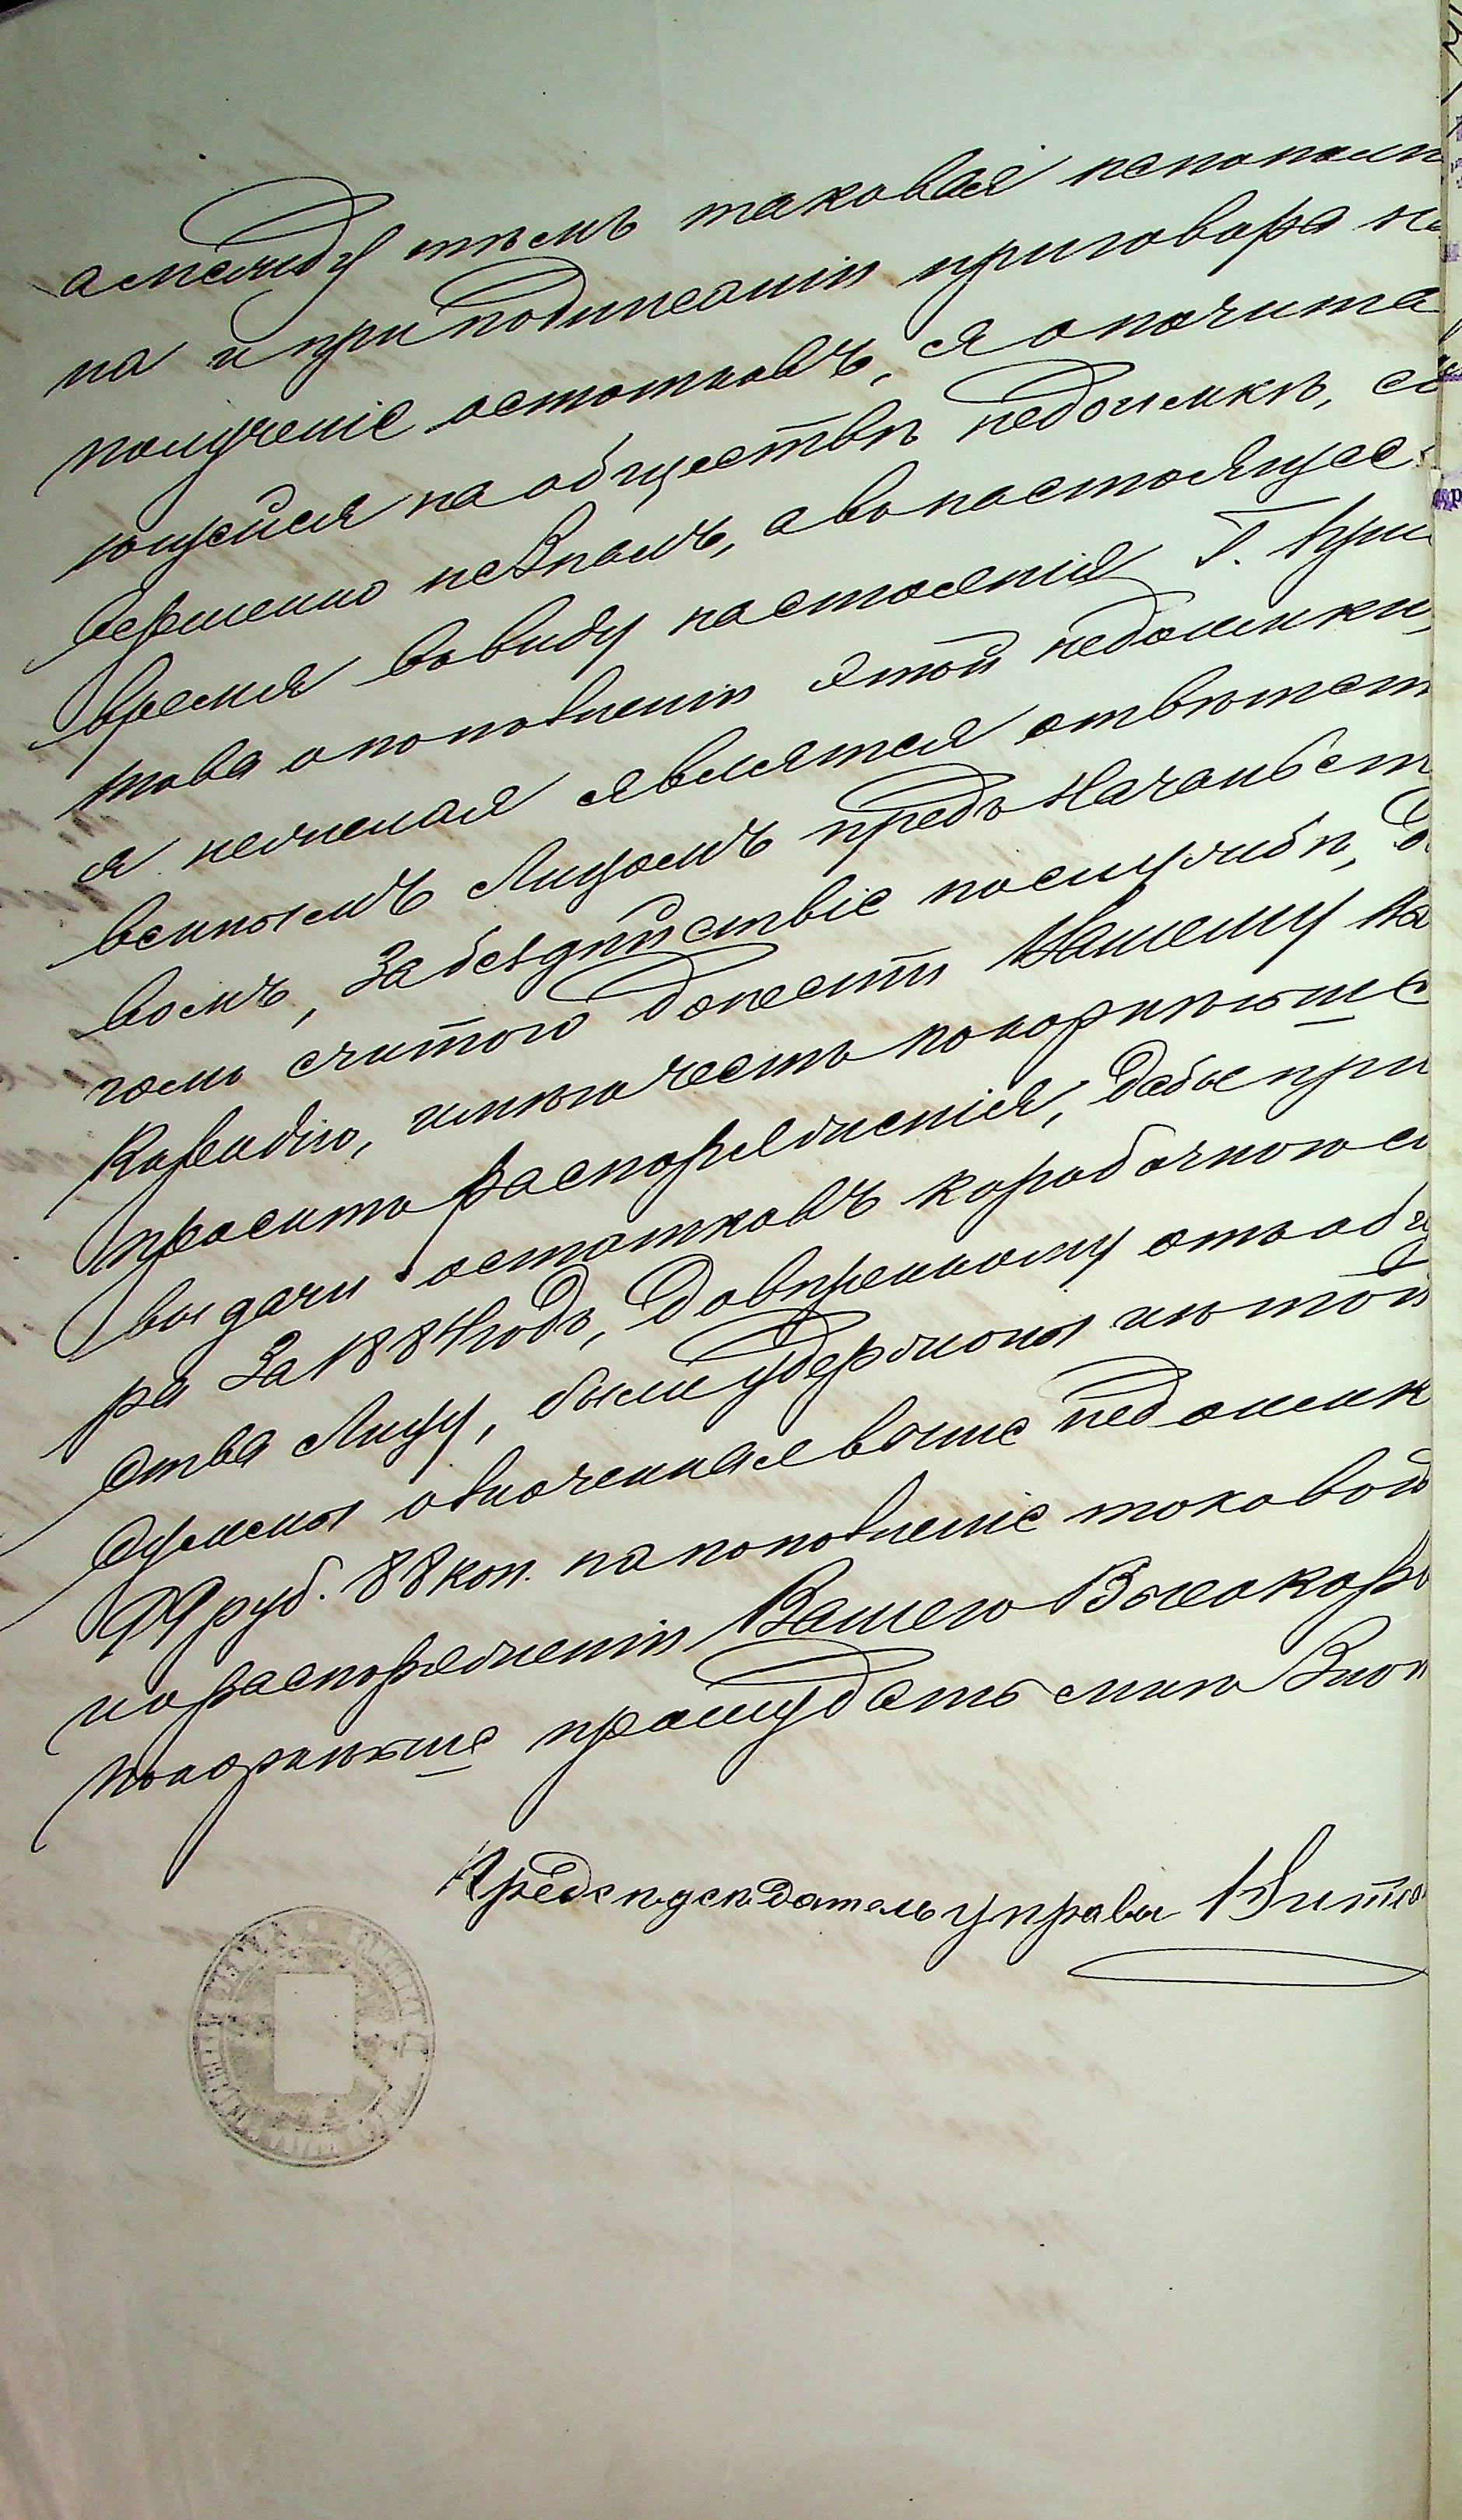 а между тѣмъ таковая непополн
на и при подписаніи приговора на
полученіе остатковъ, я о почита
ющейся на обществѣ недоимкѣ, со
вершенно не Зналъ, а во настоящее
время во виду настоянія Г. При
това о пополненіи этой недоимки,
я неминая являтся отвѣтст
веннымъ Лицомъ предъ Началъст
вомъ, За бездѣйствіе по службѣ, До
гомъ считою Донести Вашему Ва
Карабію, имѣю честь покорнѣйше
просить распоряженія, Дабы при
выдачи остатковъ коробочного сб
ра За 1884 годъ, Довѣренному отъ общ
ства Лицу, были удержаны изъ той
Суммы означенная выше недоимк
99 руб. 88 коп. на пополненіе таковой
и о распоряженіи Вашего Высокор
покорнѣйше прошу Дать мнѣ Знат
Предсѣдатель управы